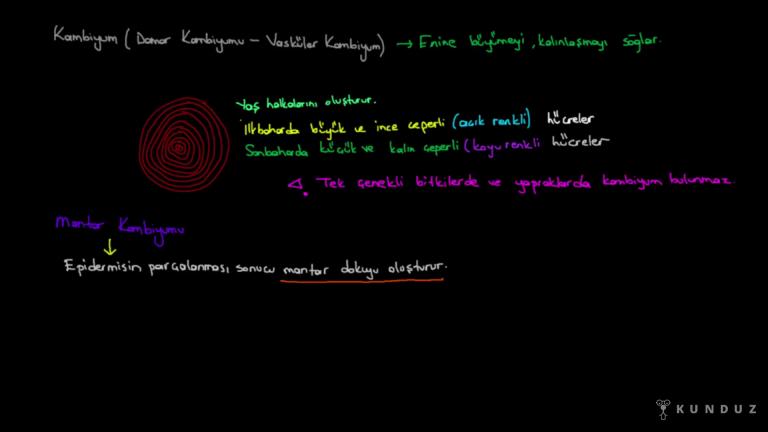 Kambiyum ( Damar Kambiyumu - Vasküler Kambiyum) → Enine büyümeyi, kalınlaşmayı sağlar.
Yaş halkalarını oluşturur.
İlkbaharda büyük ve ince çeperli (açık renkli) hücreler
Sonbaharda küçük ve kalın çeperli (koyu renkli hücreler
Tek çenekli bitkilerde ve yapraklarda kambiyum bulunmaz.
Mantar Kambiyumu
Epidermisin parçalanması sonucu mantar dokuyu oluşturur.
KUNDUZ